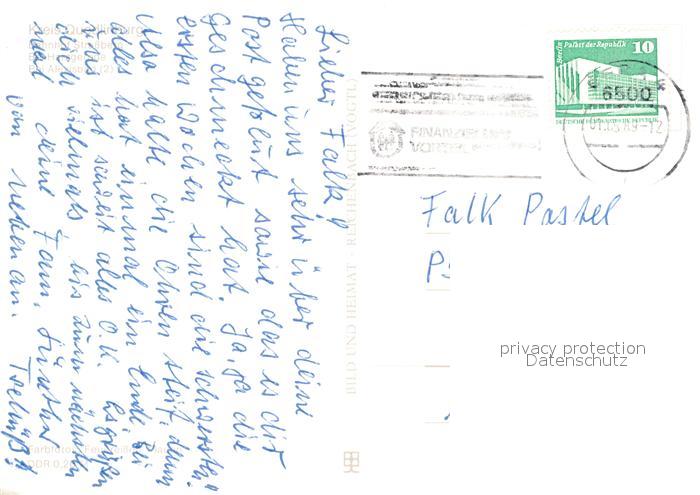 Kreis Quedlinburg
Lieber Falk!
Haben uns sehr über deine
Post gefreut sowie das es dir
geschmeckt hat. Ja, ja die
ersten Wochen sind die schwersten!
Also halte die Ohren steif, denn
alles hat einmal ein Ende. Bei
uns ist soweit alles O.K. Es grüßen
dich vielmals bis zum nächsten
mal deine Fam.
von neben an. Tschüß!
DDR 0,2
BILD UND HEIMAT · REICHENBACH (VOGTL)
FINANZIELLER
VORTEIL
Berlin Palast der Republik
10
DEUTSCHE DEMOKRATISCHE REPUBLIK
6500
Falk Pastel
privacy protection
Datenschutz